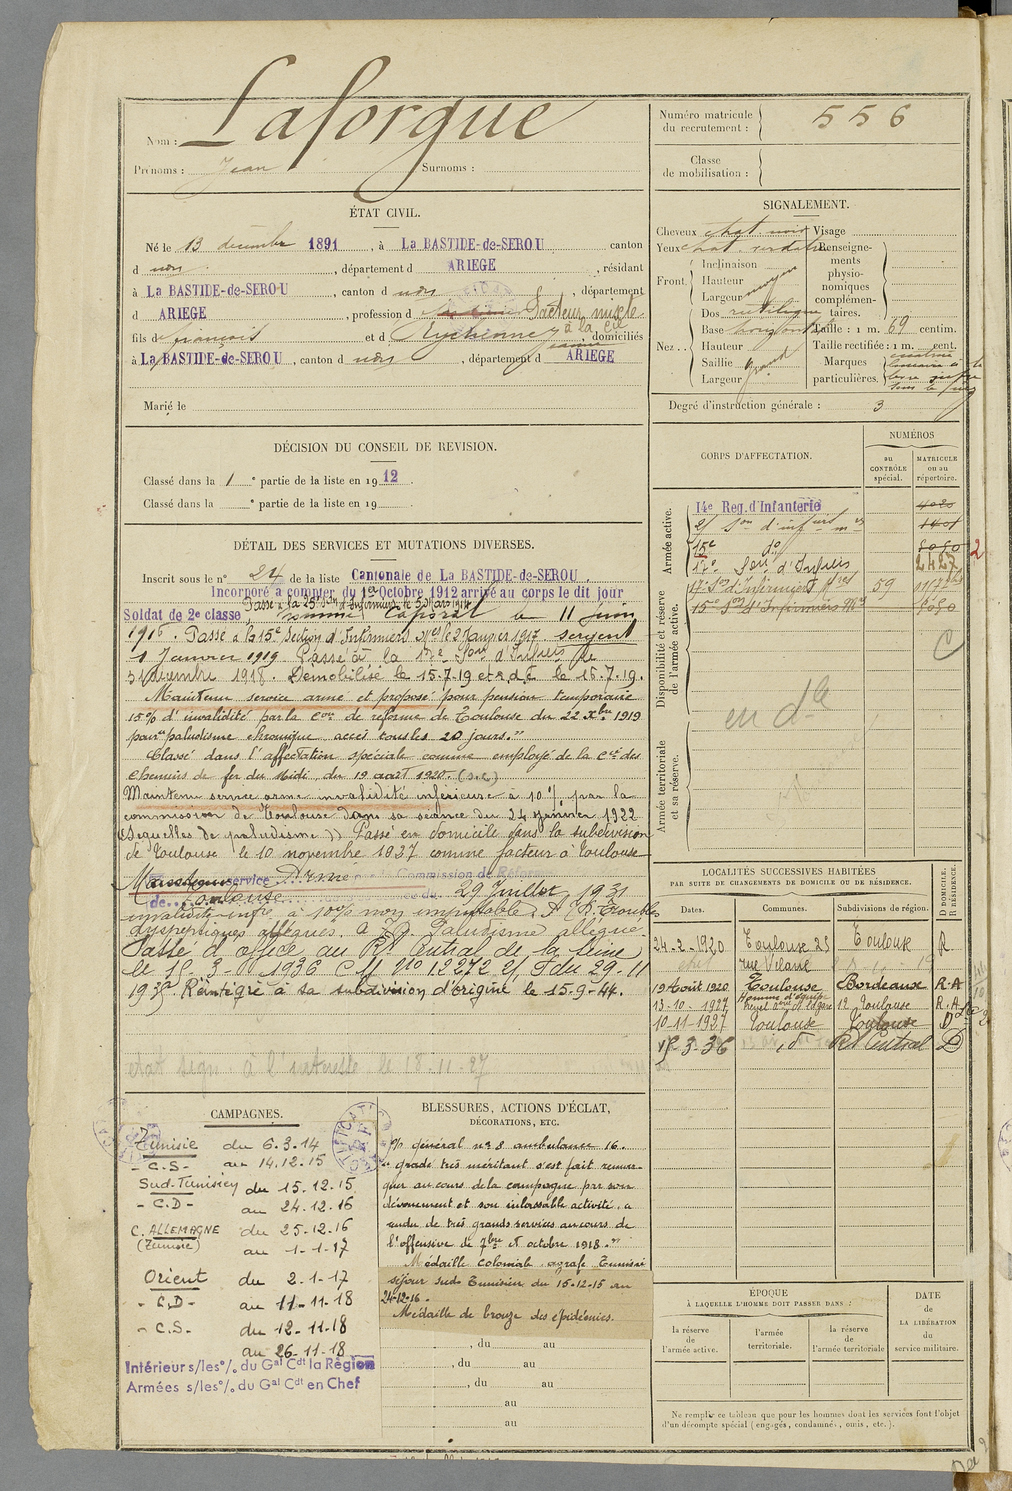 Nom : Laforgue
Prénoms : Jean Surnoms :
ÉTAT CIVIL.
Né le 13 décembre 1891, à La BASTIDE-de-SEROU canton
d udit, département d ARIEGE, résidant
à La BASTIDE-de-SEROU, canton d udit, département
d ARIEGE, profession d Facteur mixte
à la Cie
fils de françois et d domiciliés
à La BASTIDE-de-SEROU, canton d udit, département d ARIEGE
Marié le
DÉCISION DU CONSEIL DE REVISION.
Classé dans la 1 e partie de la liste en 1912.
Classé dans la e partie de la liste en 19 .
DÉTAIL DES SERVICES ET MUTATIONS DIVERSES.
Inscrit sous le n° 24 de la liste Cantonale de La BASTIDE-de-SEROU.
Incorporé à compter du 1er Octobre 1912 arrivé au corps le dit jour
Soldat de 2e classe, nommé Caporal le 11 juin
1916. Passé à la 15e Section d'Infirmiers Mres le 2 Janvier 1917 sergent
1 Janvier 1919 Passé à la 17e Son d'Infirs le
31 décembre 1918. Démobilisé le 15-7-19 le 16-7-19.
Maintenu service armé et proposé pour pension temporaire
15% d'invalidité par la Con de réforme de Toulouse du 22 Xbre 1919
pour "paludisme chronique accès tous les 20 jours."
Classé dans l'affectation spéciale comme employé de la Cie des
chemins de fer du Midi, du 19 août 1920. (S.C)
Maintenu service armé invalidité inférieure à 10% par la
commission de Toulouse dans sa séance du 24 janvier 1922
(Séquelles de paludisme) Passé en domicile dans la subdivision
de Toulouse le 10 novembre 1927 comme facteur à Toulouse
Maintenu service Armé Commission de Réforme
de Toulouse 29 Juillet 1931
invalidité infre à 10% non imputable. A) Troubles
dyspeptiques allégués. Paludisme allégué.
Passé d'office au Rt Central de la Seine
le 15-3-1936 CM No 12272 du 29-11
1935. Réintégré à sa subdivision d'origine le 15-9-44.
à l'intéressé le 18-11-27
CAMPAGNES.
Tunisie du 6.3.14
- C.S- au 14.12.15
Sud-Tunisien du 15.12.15
- C.D- au 24.12.16
C. ALLEMAGNE du 25-12.16
(Tunisie) au 1-1-17
Orient du 2-1-17
- C.D- au 11-11-18
- C.S. du 12-11-18
au 26-11-18
Intérieur s/les o/. du Gal Cdt la Région
Armées s/les o/. du Gal Cdt en Chef
BLESSURES, ACTIONS D'ÉCLAT,
DÉCORATIONS, ETC.
général no 8 ambulance 16.
"gradé très méritant s'est fait remar-
quer au cours de la campagne par son
dévouement et son inlassable activité, a
rendu de très grands services au cours de
l'offensive de 7bre et octobre 1918."
Médaille coloniale agrafe Tunisie
séjour sud Tunisien du 15-12-15 au
24-12-16.
Médaille de bronze des épidémies.
, du au
, du au
, du au
au
au
Numéro matricule
du recrutement : 556
Classe
de mobilisation :
SIGNALEMENT.
Cheveux chat. noir Visage
Yeux chat. verdâtre Renseigne-
ments
physio-
nomiques
complémen-
taires.
Front. Inclinaison
Hauteur moyen
Largeur
Nez.. Dos rectiligne
Base horizontale
Hauteur
Saillie grand
Largeur
Taille : 1 m. 69 centim.
Taille rectifiée : 1 m. cent.
Marques
particulières.
Degré d'instruction générale : 3
CORPS D'AFFECTATION.
NUMÉROS
au
CONTRÔLE
spécial.
MATRICULE
ou au
répertoire.
Armée active.
14e Reg. d'Infanterie
15e do 8080
17e Son d'Infirs 2427
17e Son d'Infirmiers Mres 59
15e Son d'Infirmiers Mres 8080
Disponibilité et réserve
de l'armée active.
Armée territoriale
et sa réserve.
LOCALITÉS SUCCESSIVES HABITÉES
PAR SUITE DE CHANGEMENTS DE DOMICILE OU DE RÉSIDENCE.
Dates. Communes. Subdivisions de région. D DOMICILE. R RÉSIDENCE.
24-2-1920 Toulouse 25 Toulouse R.
rue
19 Août 1920 Toulouse Bordeaux R-A
13-10-1927 Toulouse R.A
10-11-1927 Toulouse Toulouse D
15-3-36 d° Rt Central D
ÉPOQUE
À LAQUELLE L'HOMME DOIT PASSER DANS :
la réserve
de
l'armée active.
l'armée
territoriale.
la réserve
de
l'armée territoriale
DATE
de
LA LIBÉRATION
du
service militaire.
Ne remplir ce tableau que pour les hommes dont les services font l'objet
d'un décompte spécial (engagés, condamnés, omis, etc.).